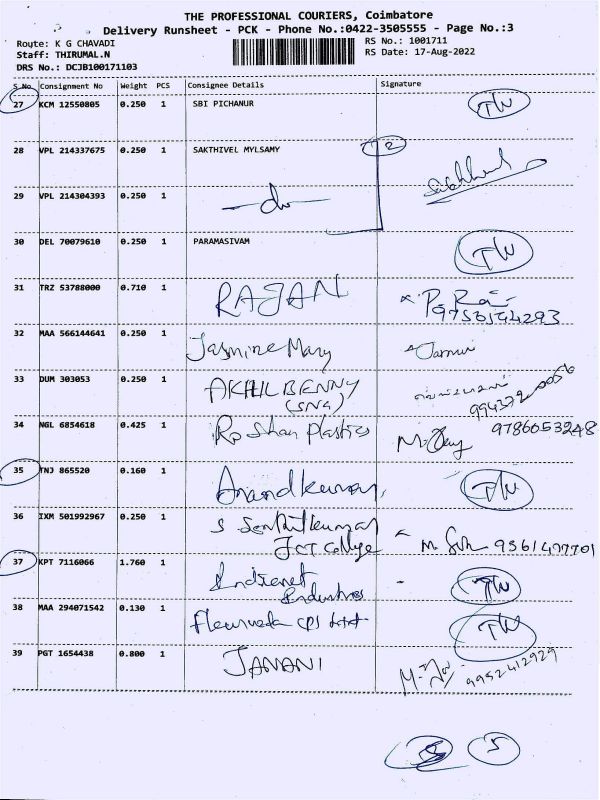 THE PROFESSIONAL COURIERS, Coimbatore
Delivery Runsheet - PCK - Phone No.:0422-3505555 - Page No.:3
Route: K G CHAVADI
RS No.: 1001711
Staff: THIRUMAL.N
RS Date: 17-Aug-2022
DRS No.: DCJB100171103
S No Consignment No Weight PCS Consignee Details Signature
27 KCM 12550805 0.250 1 SBI PICHANUR TW
28 VPL 214337675 0.250 1 SAKTHIVEL MYLSAMY 2
29 VPL 214304393 0.250 1 -do-
30 DEL 70079610 0.250 1 PARAMASIVAM TW
31 TRZ 53788000 0.710 1 RAJAN
32 MAA 566144641 0.250 1 Jasmine Mary
33 DUM 303053 0.250 1 AKHIL BENNY
(SNG)
34 NGL 6854618 0.425 1 Roshan Plastics 9786053248
35 TNJ 865520 0.160 1 Anandkumar, TW
36 IXM 501992967 0.250 1 S Senthilkumar
JCT College
37 KPT 7116066 1.760 1 Industries TW
38 MAA 294071542 0.130 1 TW
39 PGT 1654438 0.800 1 JANANI 9952412929
5